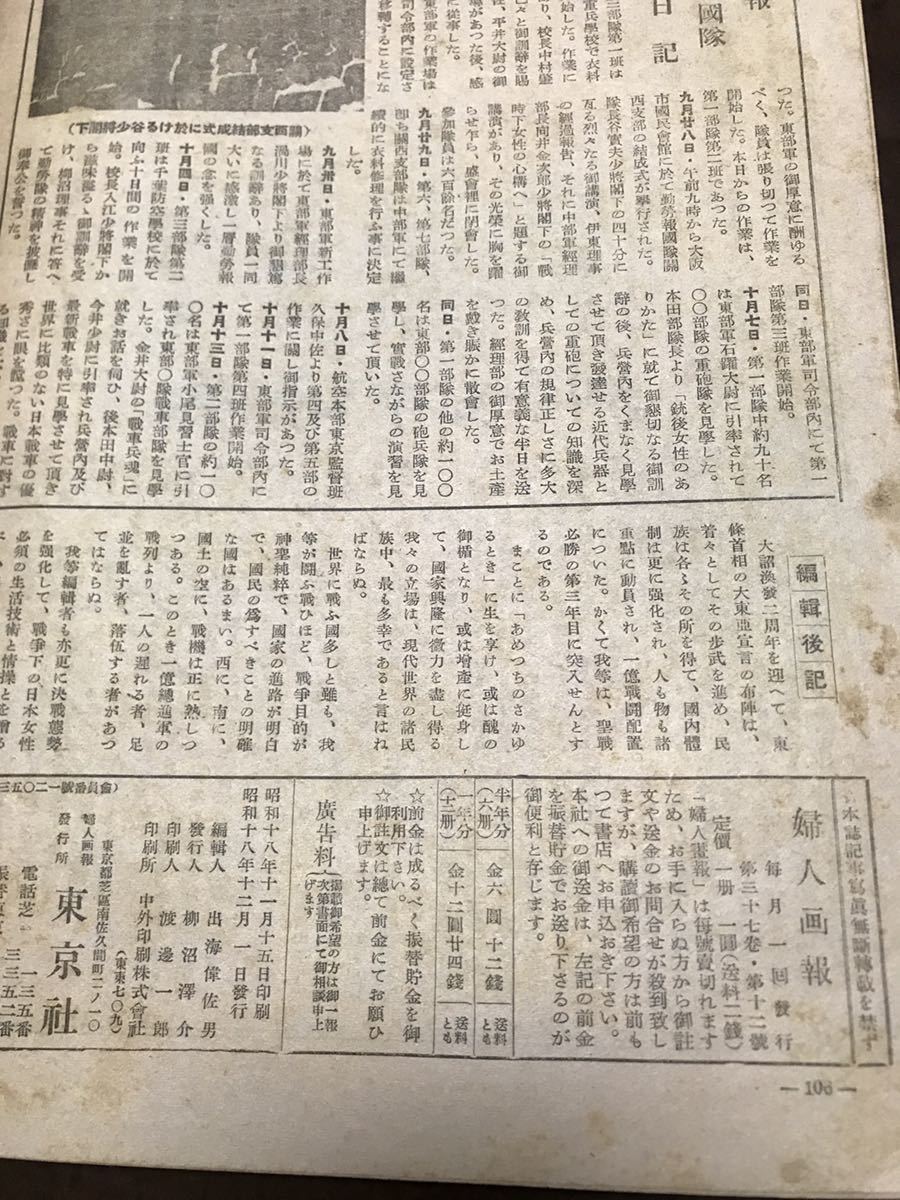 報
國隊
日記
三部隊第一班は
重兵學校で衣料
始した。作業に
り、校長中村肇
々と御訓辭を賜
員、平井大尉の御
場があつた後、感
に從事した。
東部軍の作業場は
司令部內に設定さ
移轉することにな
(關西支部結成式に於ける谷少將閣下)
つた。東部軍の御厚意に酬ゆる
べく、隊員は張り切つて作業を
開始した。本日からの作業は、
第一部隊第二班であつた。
九月廿八日・午前九時から大阪
市國民會館に於て勤勞報國隊關
西支部の結成式が擧行された。
隊長谷實夫少將閣下の四十分に
亙る烈々たる御講演、伊東理事
の經過報告、それに中部軍經理
部長向井金次郎少將閣下の「戰
時下女性の心構へ」と題する御
講演があり、その光榮に胸を躍
らせ乍ら、盛會裡に閉會した。
參加隊員は六百餘名だつた。
九月廿九日・第六、第七部隊、
卽ち關西支部隊は中部軍にて繼
續的に衣料修理を行ふ事に決定
した。
九月卅日・東部軍新工作
場に於て東部軍經理部長
渴川少將閣下より御懇篤
なる訓辭あり、隊員一同
大いに感激し一層勤勞報
國の念を強くした。
十月四日・第三部隊第二
班は千葉防空學校に於て
向ふ十日間の作業を開
始。校長入江少將閣下か
ら滋味溢るゝ御訓辭を受
け、柳沼理事それに答へ
て勤勞隊の精神を披瀝し
御奉公を誓つた。
同日・東部軍司令部內にて第一
部隊第三班作業開始。
十月七日・第一部隊中約九十名
は東部軍石躍大尉に引率されて
〇〇部隊の重砲隊を見學した。
本田部隊長より「銃後女性のあ
りかた」に就て御懇切なる御訓
辭の後、兵營內をくまなく見學
させて頂き發達せる近代兵器と
しての重砲についての知識を深
め、兵營內の規律正しさに多大
の敎訓を得て有意義な半日を送
つた。經理部の御厚意でお土產
を戴き賑かに散會した。
同日・第一部隊の他の約一〇〇
名は東部〇〇部隊の砲兵隊を見
學し、實戰さながらの演習を見
學させて頂いた。
十月八日・航空本部東京監督班
久保中佐より第四及び第五部の
作業に關し御指示があつた。
十月十一日・東部軍司令部內に
て第一部隊第四班作業開始。
十月十三日・第二部隊の約一〇
〇名は東部軍小尾見習士官に引
率され東部〇隊戰車部隊を見學
した。金井大尉の「戰車兵魂」に
就きお話を伺ひ、後本田中尉、
今井少尉に引率され兵營內及び
最新戰車を特に見學させて頂き
世界に比類のない日本戰車の優
秀さに眼を瞠つた。戰車に對す
編輯後記
大詔渙發二周年を迎へて、東
條首相の大東亞宣言の布陣は、
着々としてその步武を進め、民
族は各〻その所を得て、國內體
制は更に强化され、人も物も諸
重點に動員され、一億戰鬪配置
についた。かくて我等は、聖戰
必勝の第三年目に突入せんとす
るのである。
まことに「あめつちのさかゆ
るとき」に生を享け、或は醜の
御楯となり、或は增產に挺身し
て、國家興隆に微力を盡し得る
我々の立場は、現代世界の諸民
族中、最も多幸であると言はね
ばならぬ。
世界に戰ふ國多しと雖も、我
等が鬪ふ戰ひほど、戰爭目的が
神聖純粹で、國家の進路が明白
で、國民の爲すべきことの明確
な國はあるまい。西に、南に、
國土の空に、戰機は正に熟しつ
つある。このとき一億總進軍の
戰列より、一人の遲れる者、足
並を亂す者、落伍する者があつ
てはならぬ。
我等編輯者も亦更に決戰態勢
を强化して、戰爭下の日本女性
必須の生活技術と情操とを贈る
本誌記事寫眞無斷轉載を禁ず
婦人画報
每月一回發行
第三十七卷・第十二號
定價 一册 一圓(送料二錢)
「婦人畫報」は每號賣切れます
ため、お手に入らぬ方から御註
文や送金のお問合せが殺到致し
ますが、購讀御希望の方は前も
つて書店へお申込おき下さい。
本社への御送金は、左記の前金
を振替貯金でお送り下さるのが
御便利と存じます。
半年分(六册) 金六圓十二錢 送料とも
一年分(十二册) 金十二圓廿四錢 送料とも
☆前金は成るべく振替貯金を御
利用下さい。
☆御註文は總て前金にてお願ひ
申上げます。
廣告料(揭載御希望の方は御一報次第書面にて御相談申上げます)
昭和十八年十一月十五日印刷
昭和十八年十二月一日發行
編輯人 出海偉佐男
發行人 柳沼澤介
印刷人 渡邊一郎
印刷所 中外印刷株式會社
(東東七〇九)
東京都芝區南佐久間町二ノ一〇
婦人画報發行所 東京社
電話芝 一三五番
三三五二番
(會員番號一二〇五三
— 106 —